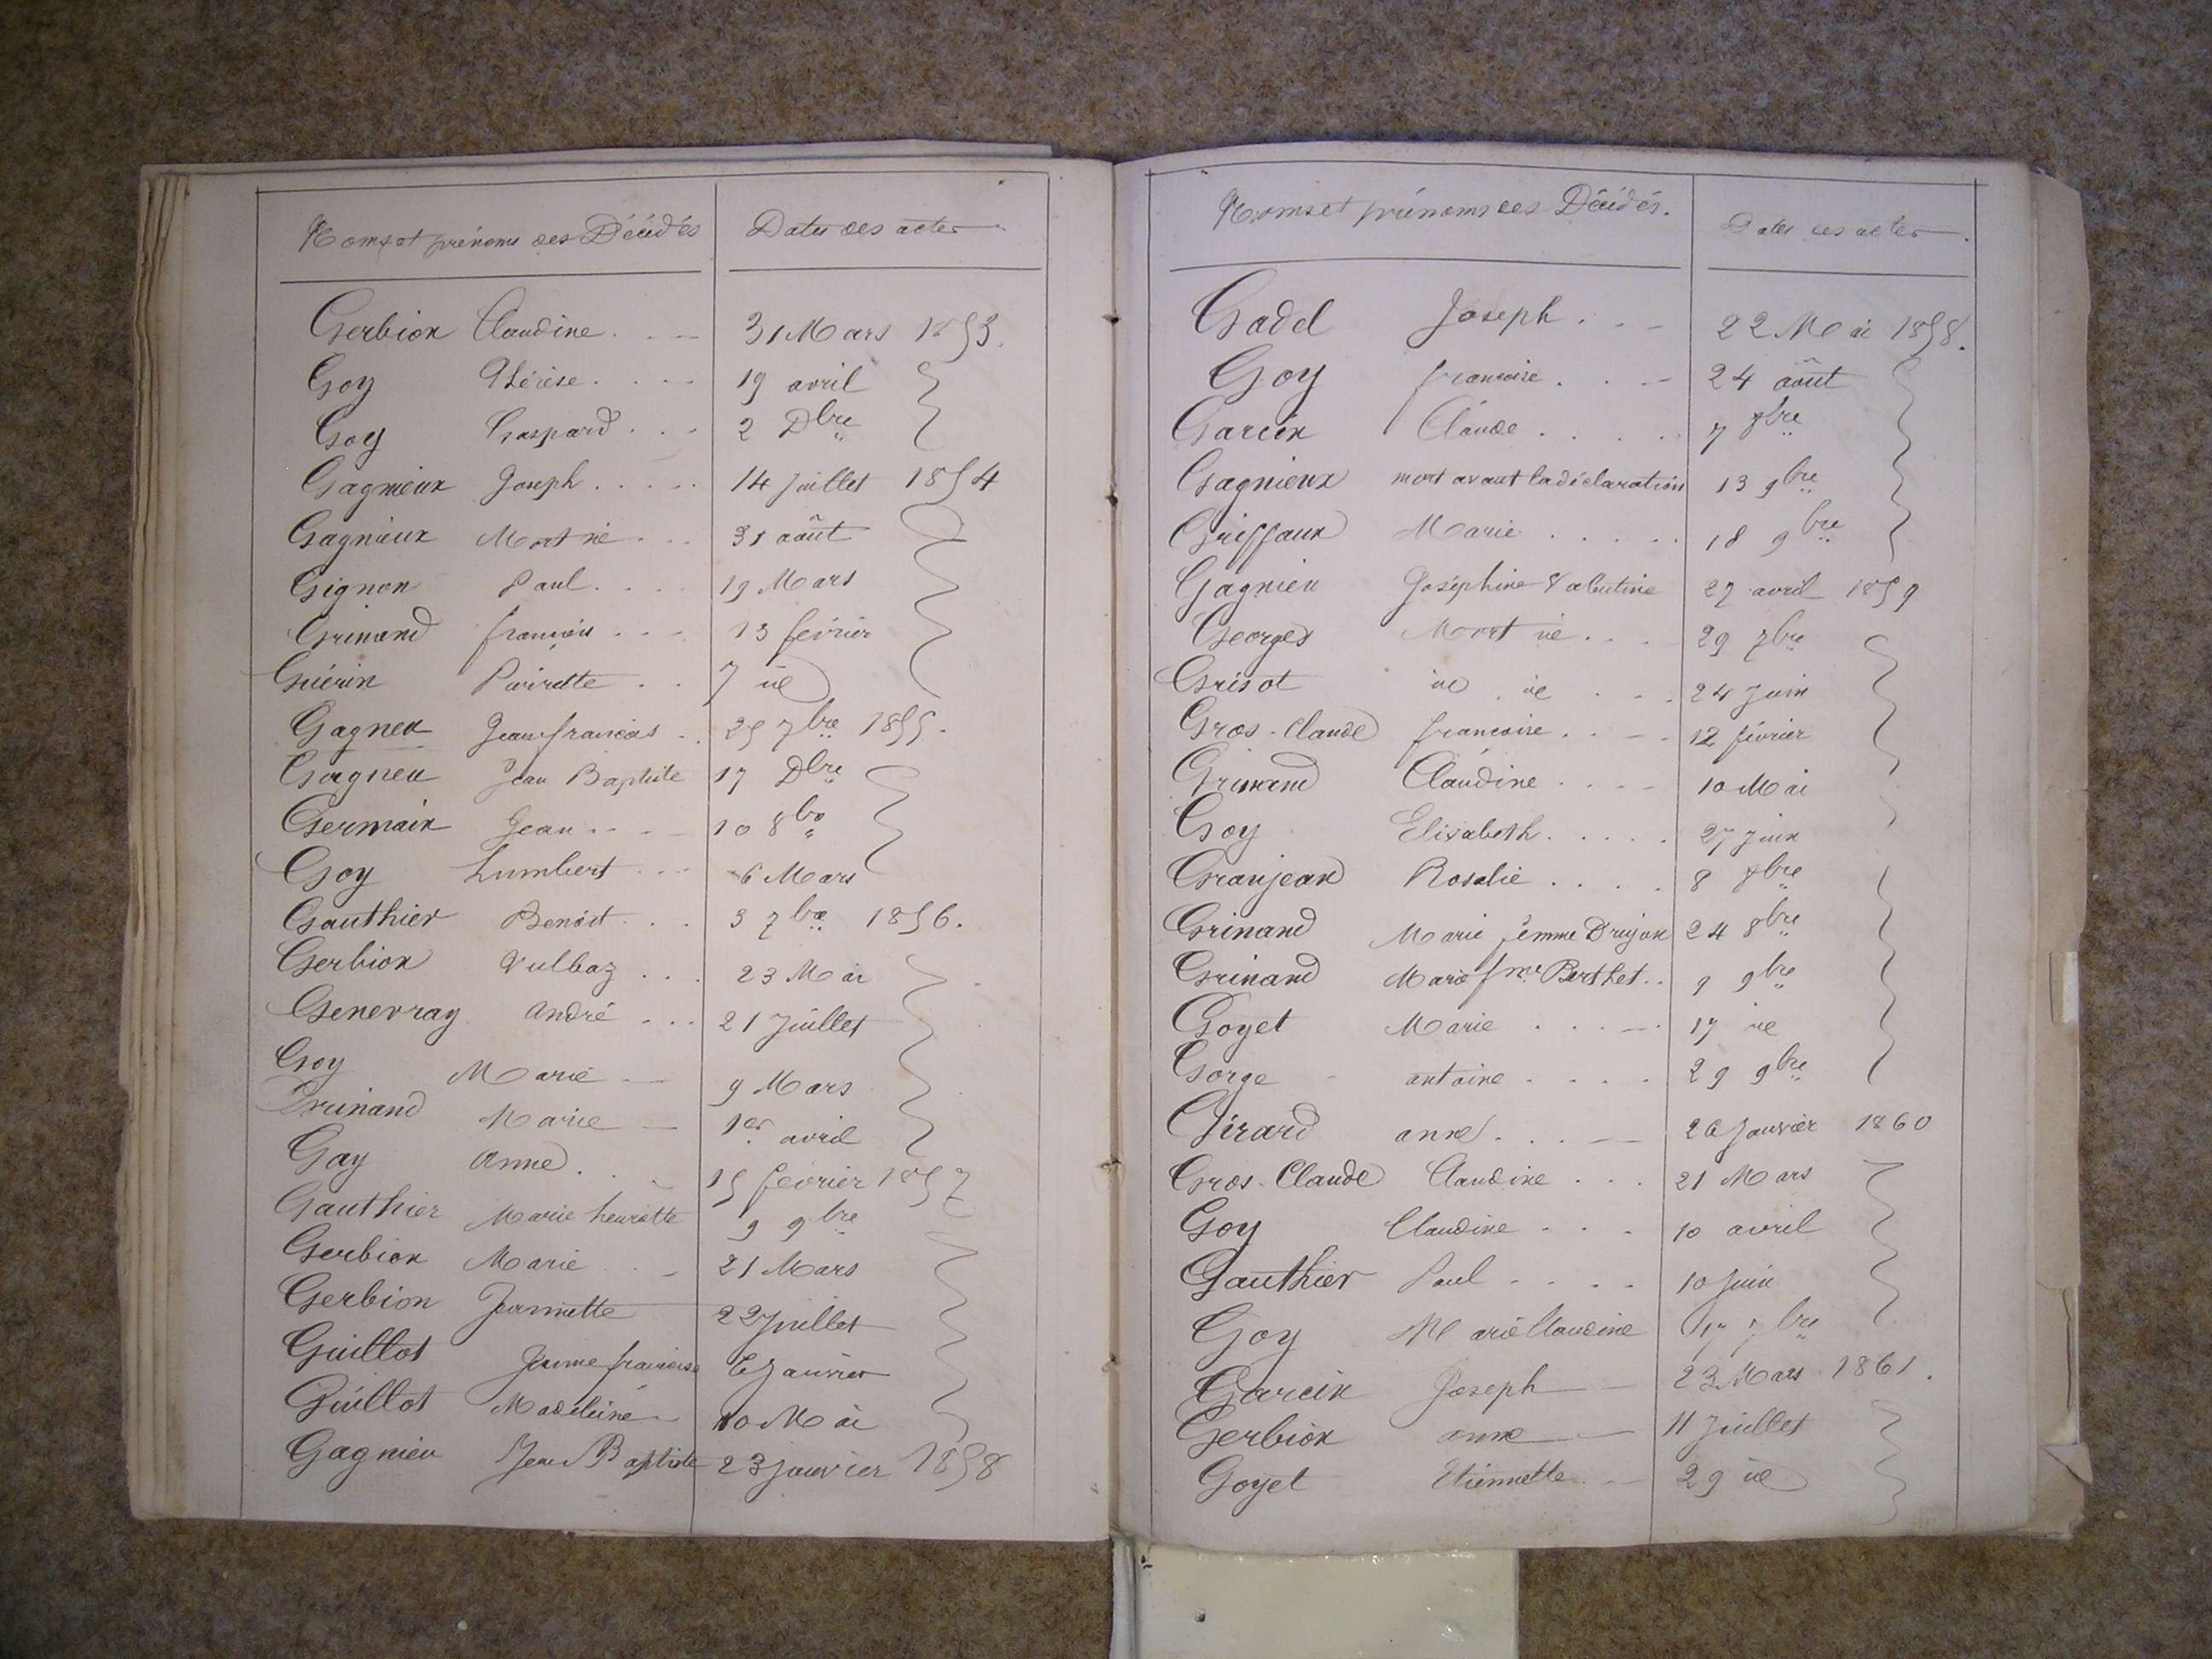 Noms et prénoms des Décédés Dates des actes
Gerbion Claudine 31 Mars 1853.
Goy Thérèse 19 avril
Goy Gaspard 2 Dbre
Gagnieux Joseph 14 Juillet 1854
Gagnieux Mort né 31 août
Gignon Paul 19 Mars
Grinand françois 13 février
Guérin Pierrette 7 id
Gagneu Jean françois 25 7bre 1855.
Gagneu Jean Baptiste 17 Dbre
Germain Jean 10 8bre
Goy Humbert 6 Mars
Gauthier Benoit 3 7bre 1856.
Gerbion Vulbaz 23 Mai
Genevray André 21 Juillet
Goy Marie 9 Mars
Grinand Marie 1er avril
Gay Anne 15 février 1857
Gauthier Marie henriette 9 9bre
Gerbion Marie 21 Mars
Gerbion Jeannette 22 Juillet
Guillot Jeanne françoise 6 Janvier
Guillot Madeleine 10 Mai
Gagnieu Jean Baptiste 23 janvier 1858
Noms et prénoms des Décédés. Dates des actes.
Gadel Joseph 22 Mai 1858.
Goy françoise 24 août
Garcin Claude 7
Gagnieux mort avant la déclaration 13 9bre
Griffaux Marie 18 9bre
Gagnieu Joséphine Valentine 27 avril 1859
Georges Mort né 29 7bre
Grisot id id 24 Juin
Gros-Claude françoise 12 février
Grinand Claudine 10 Mai
Goy Elisabeth 27 juin
Granjean Rosalie 8
Grinand Marie femme Drujon 24 8bre
Grinand Marie fme Berthet 9 9bre
Goyet Marie 17 id
Gorge antoine 29 9bre
Girard anne 26 Janvier 1860
Gros-Claude Claudine 21 Mars
Goy Claudine 10 avril
Gauthier Paul 10 Juin
Goy Marie Claudine
Garcin Joseph 23 Mars 1861.
Gerbion anne 11 Juillet
Goyet Etiennette 29 id